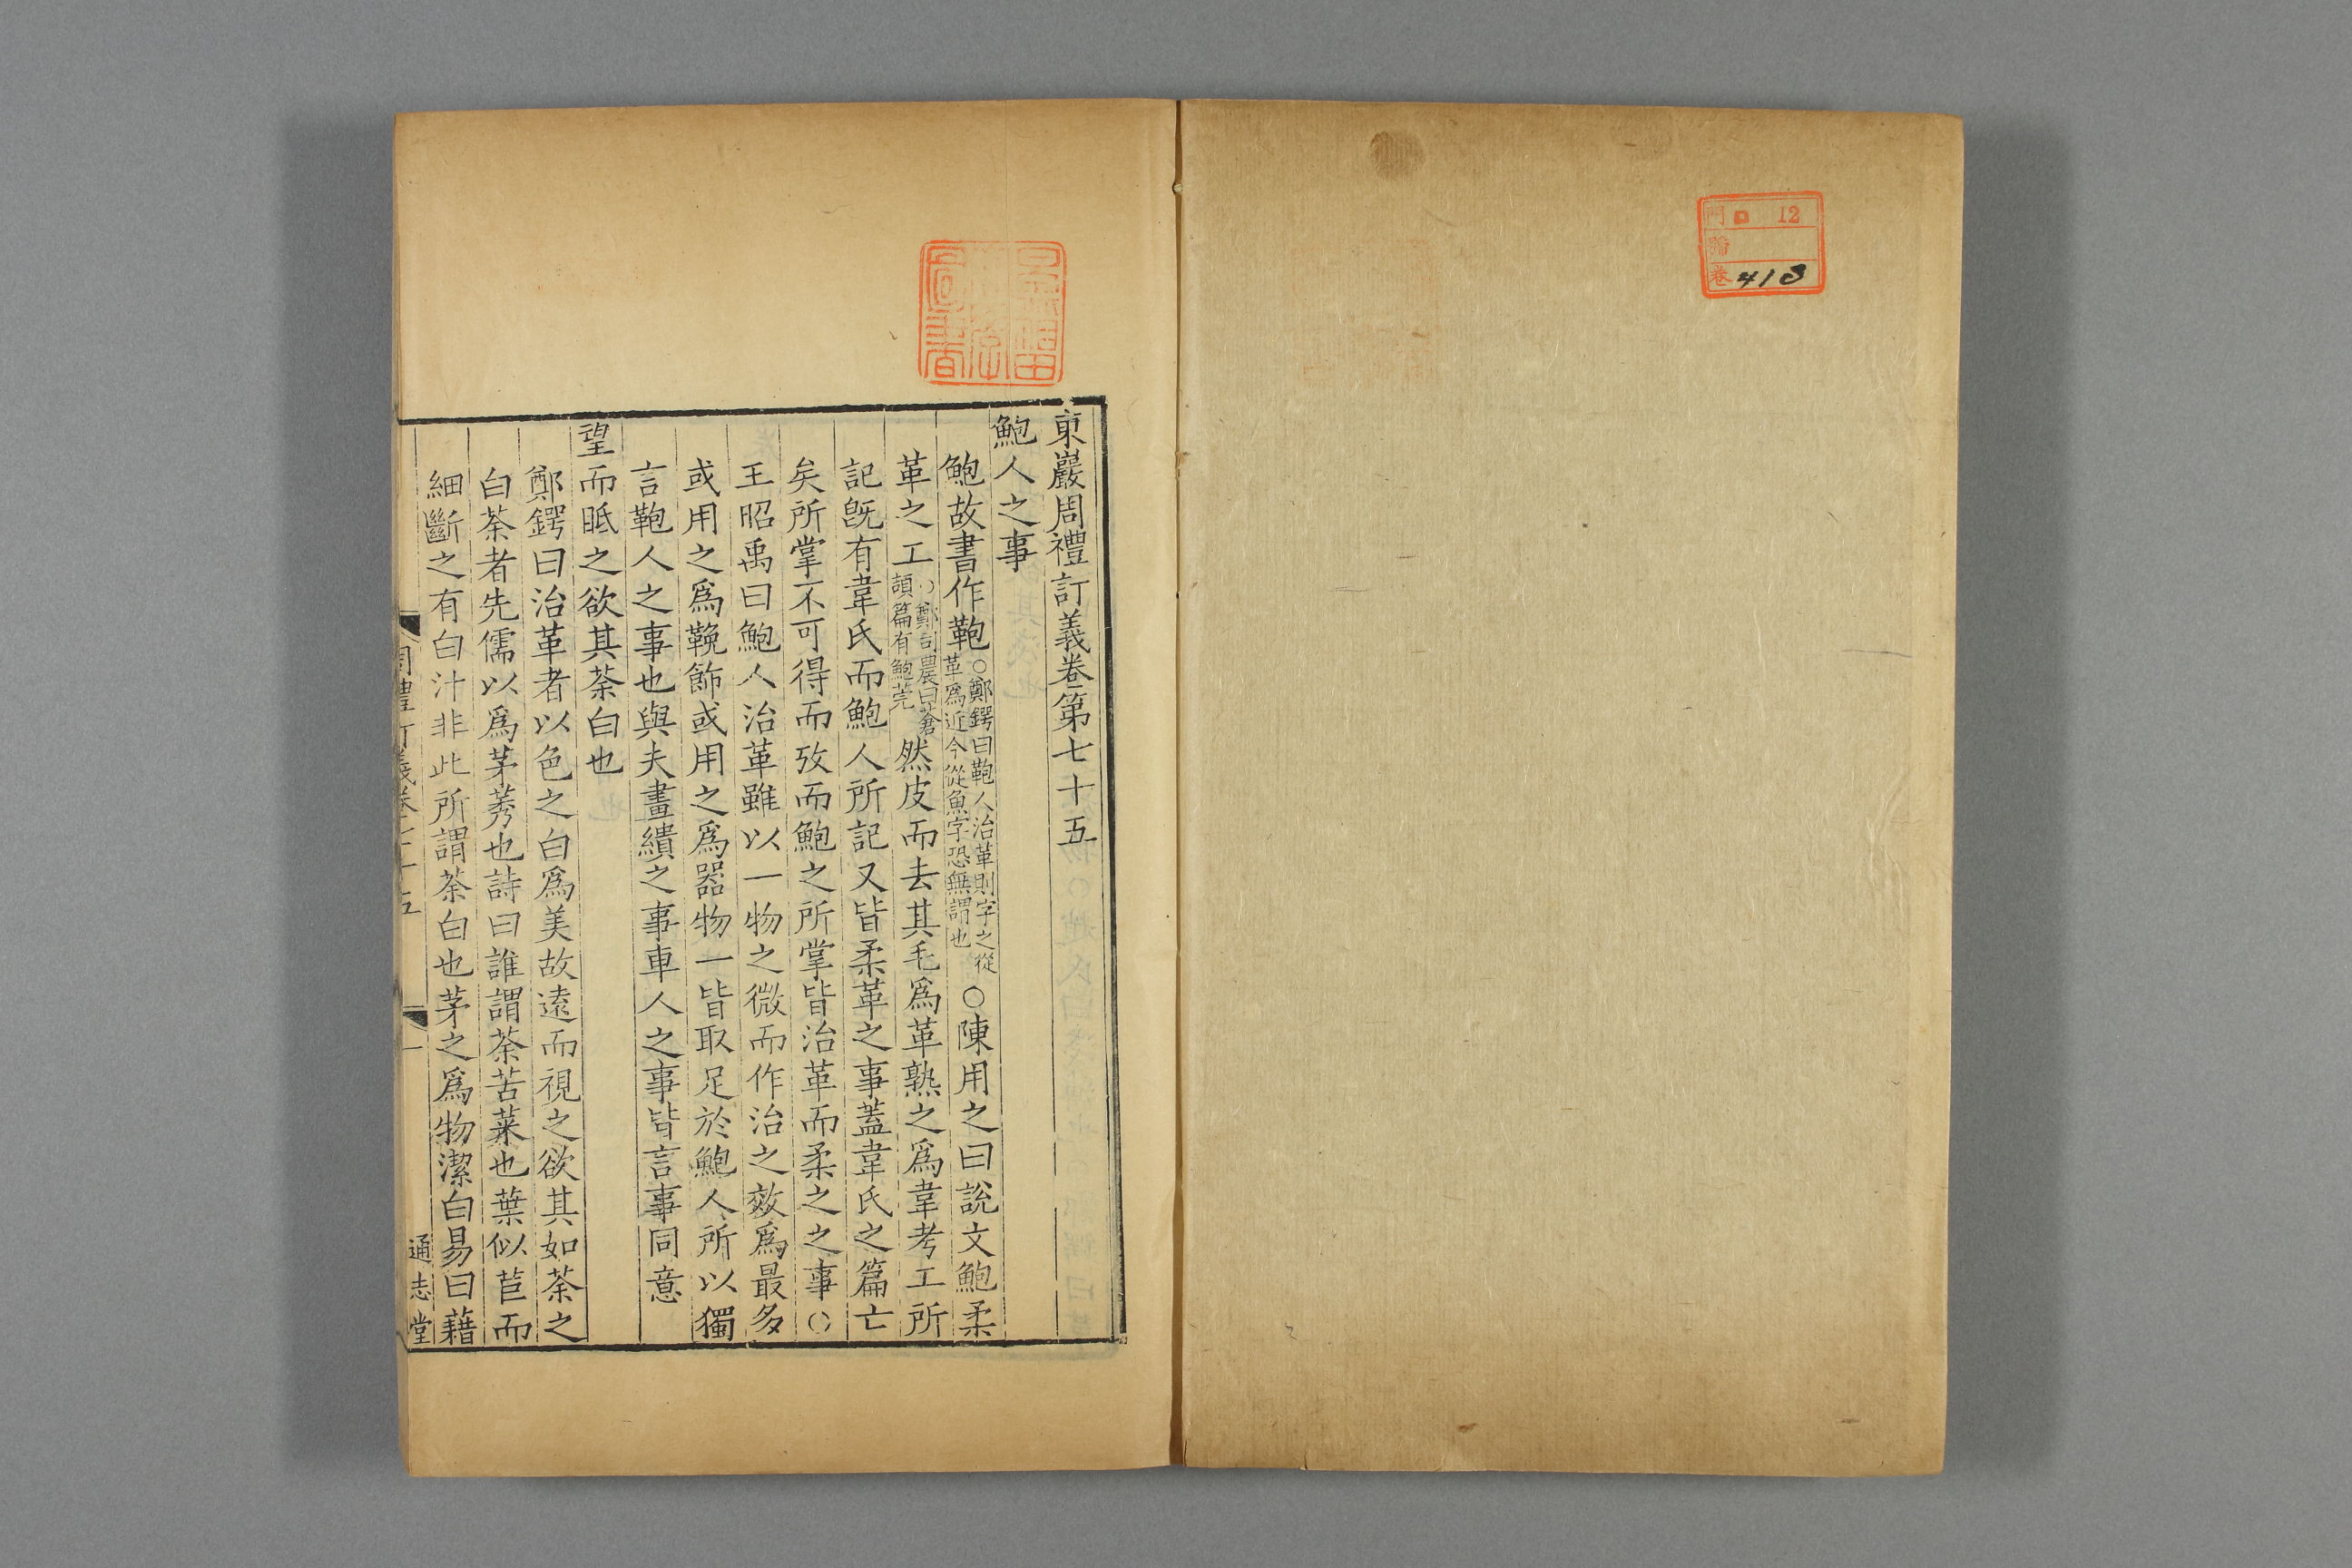 門 ロ 12
號
卷 418
東巖周禮訂義卷第七十五
鮑人之事
鮑故書作鞄○鄭鍔曰鞄人治革則字之從革爲近今從魚字恐無謂也○陳用之曰說文鮑柔
革之工○鄭司農曰蒼頡篇有鮑㲯然皮而去其毛爲革熟之爲韋考工所
記旣有韋氏而鮑人所記又皆柔革之事蓋韋氏之篇亡
矣所掌不可得而攷而鮑之所掌皆治革而柔之之事○
王昭禹曰鮑人治革雖以一物之微而作治之效爲最多
或用之爲鞔飾或用之爲器物一皆取足於鮑人所以獨
言鞄人之事也與夫畫繢之事車人之事皆言事同意
望而眂之欲其荼白也
鄭鍔曰治革者以色之白爲美故遠而視之欲其如荼之
白荼者先儒以爲茅莠也詩曰誰謂荼苦菜也葉似苣而
細斷之有白汁非此所謂荼白也茅之爲物潔白易曰藉
周禮訂義卷七十五
一
通志堂